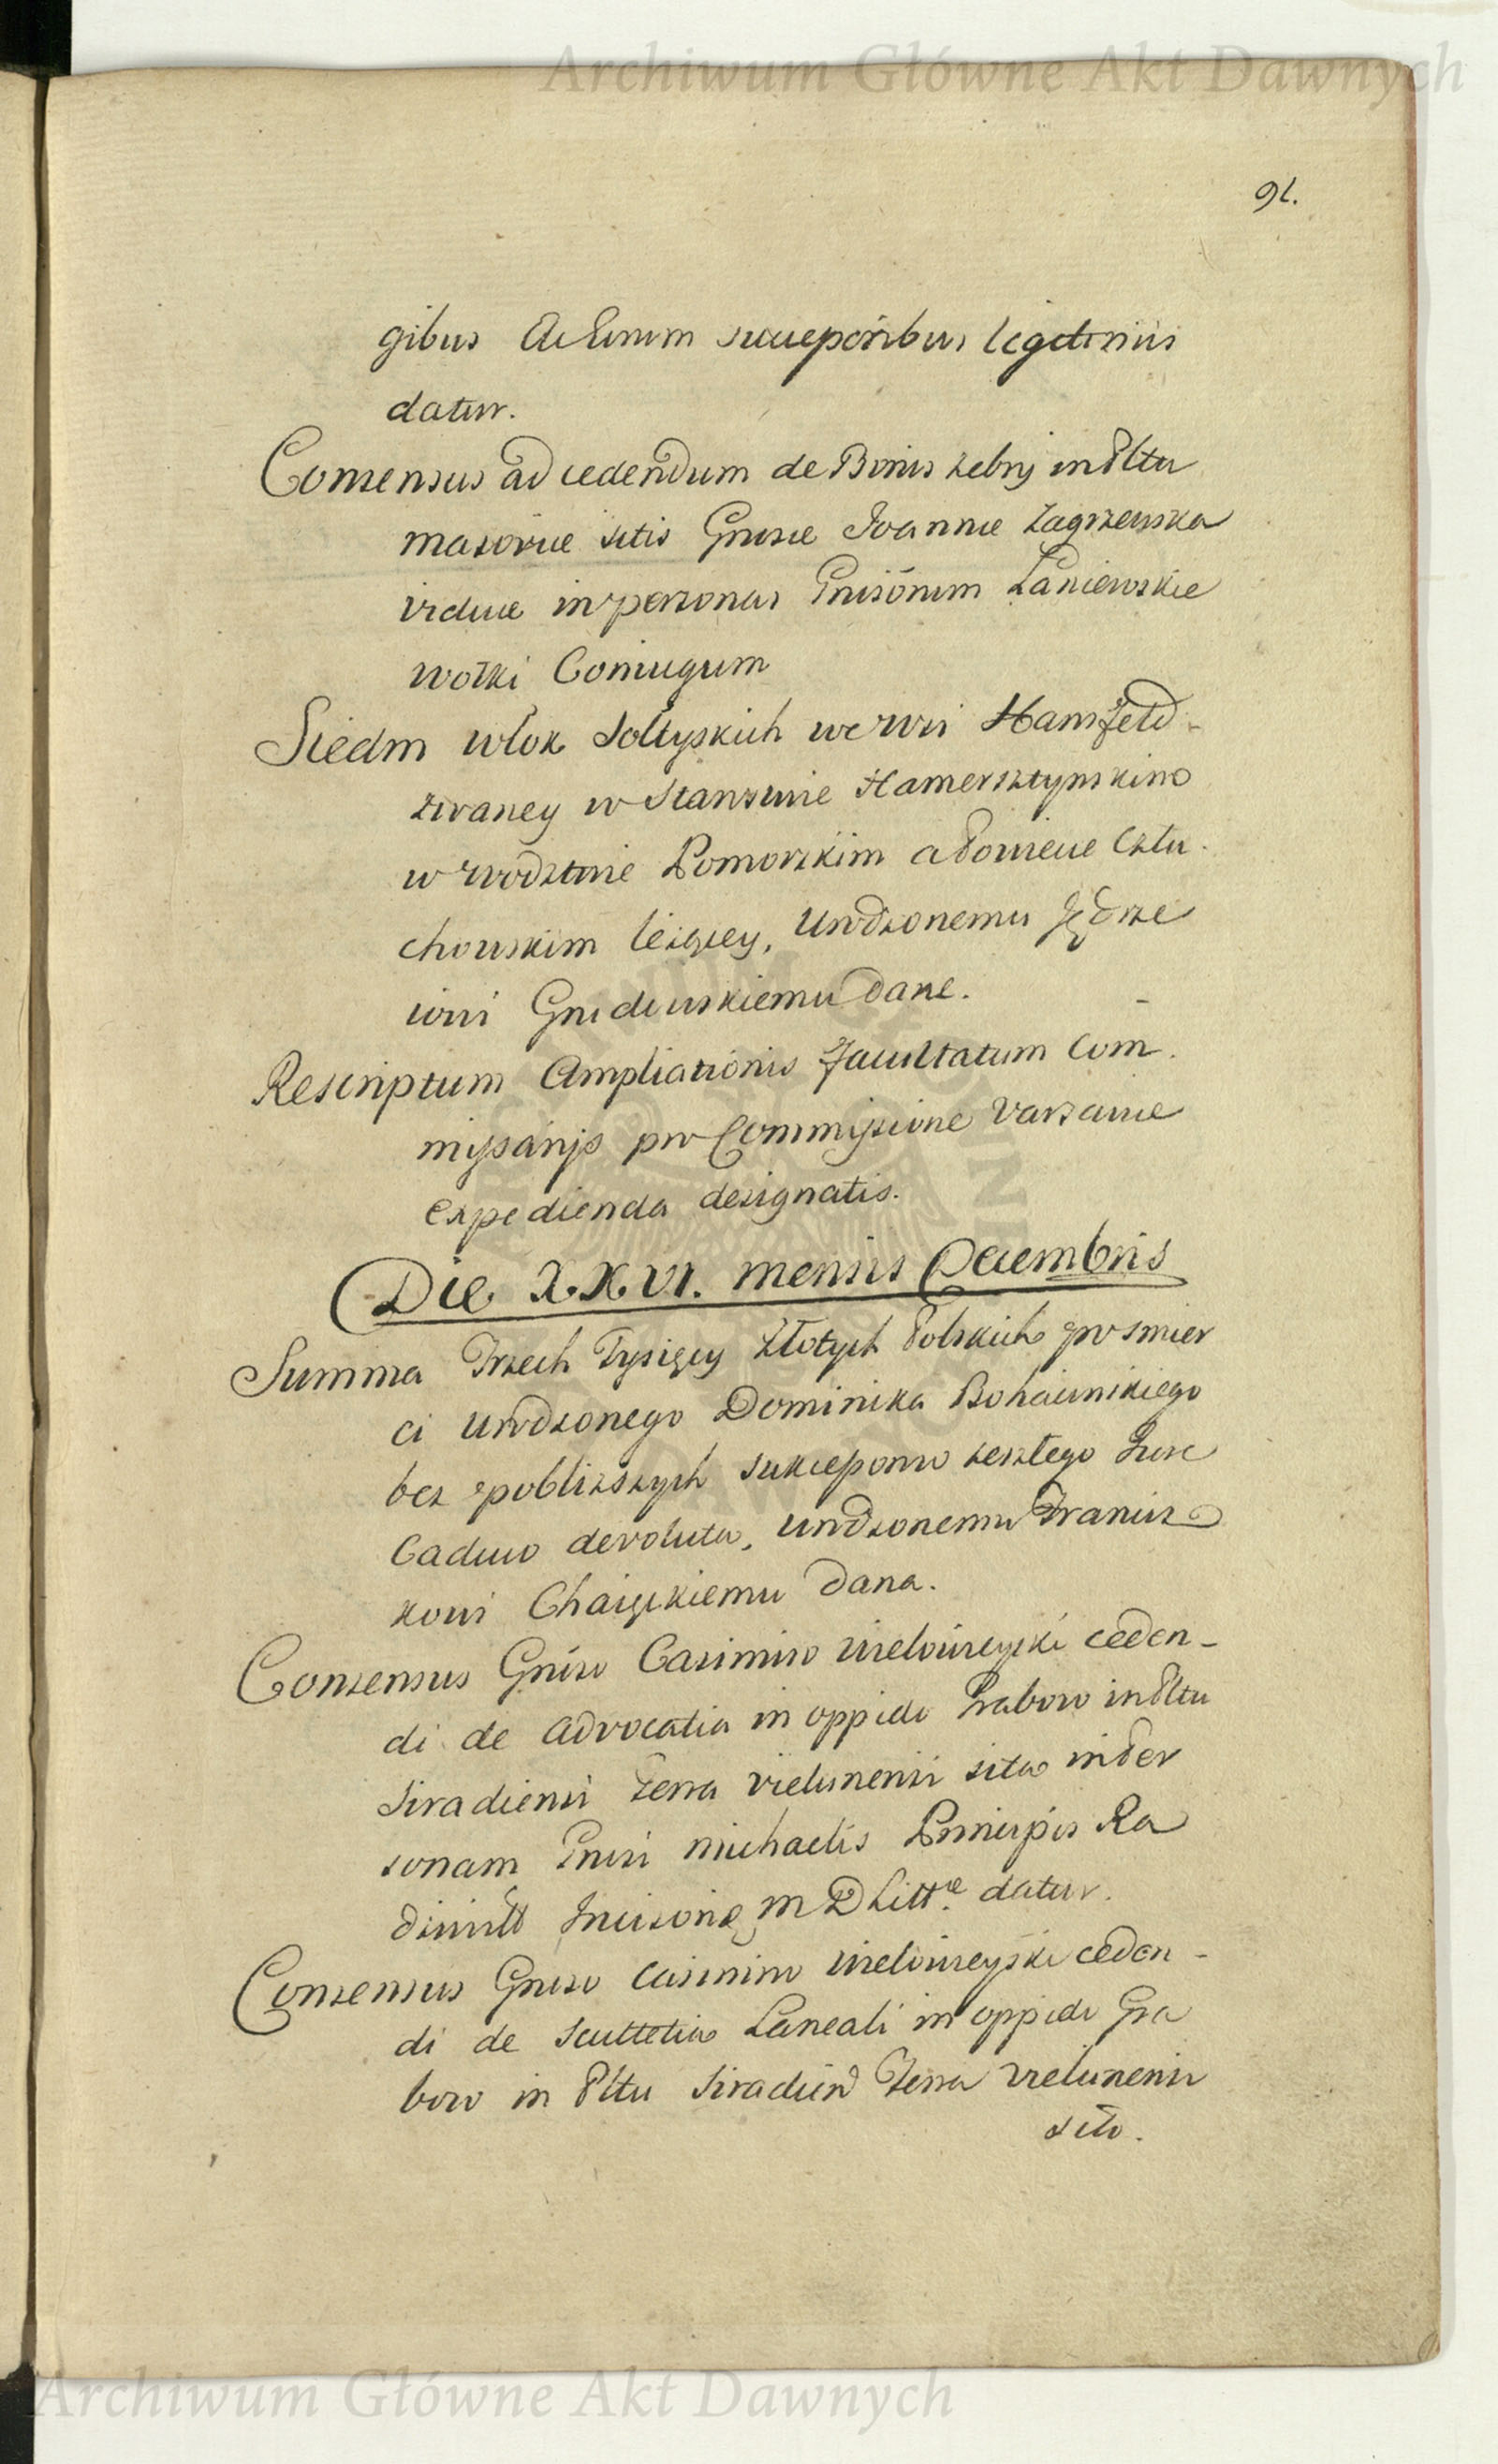 Archiwum Główne Akt Dawnych
91.
gibus ac Eorum succeporibus legitimis
datur.
Consensus ad cedendum de Bonis Zebry in Pltu
masoviæ sitis Gnosæ Joannæ Zagrzewska
viduæ in personas Gnisōrum Zaniewskie
wołki Coniugum
Siedm włok Sołtyskich we wsi Hansfeld
zwaney w Starstwie Hamersztynskim
w Wodztwie Pomorskim a Powiecie Cztu.
chowskim leżący, Urodzonemu Jędrze
iowi dane.
Rescriptum Ampliationis Facultatum Com̄.
missarijs pro Commissione Varsaviæ
expedienda designatis.
Die XXVI. mensis Decembris
Summa Trzech Tysięcy Złotych Polskich po smier
ci Urodzonego Dominika
bez pobliższych sukceporow zeszłego Jure
Caduco devoluta, Urodzonemu Francisz
kowi Chaięckiemu dana.
Consensus Gnōso Casimiro Wielowieyski ceden-
di de Advocatia in oppido Grabow in Pltu
Siradiensi Terra vielunensi sita in Per
sonam Gnōsi Michaelis Principis Ra
M D Litt.æ datur.
Consensus Gnoso Casimiro Wielowieyski ceden-
di de Scultetia Laneali in oppido Gra
bow in Pltu Siradien Terra vielunensi
sito.
Archiwum Główne Akt Dawnych